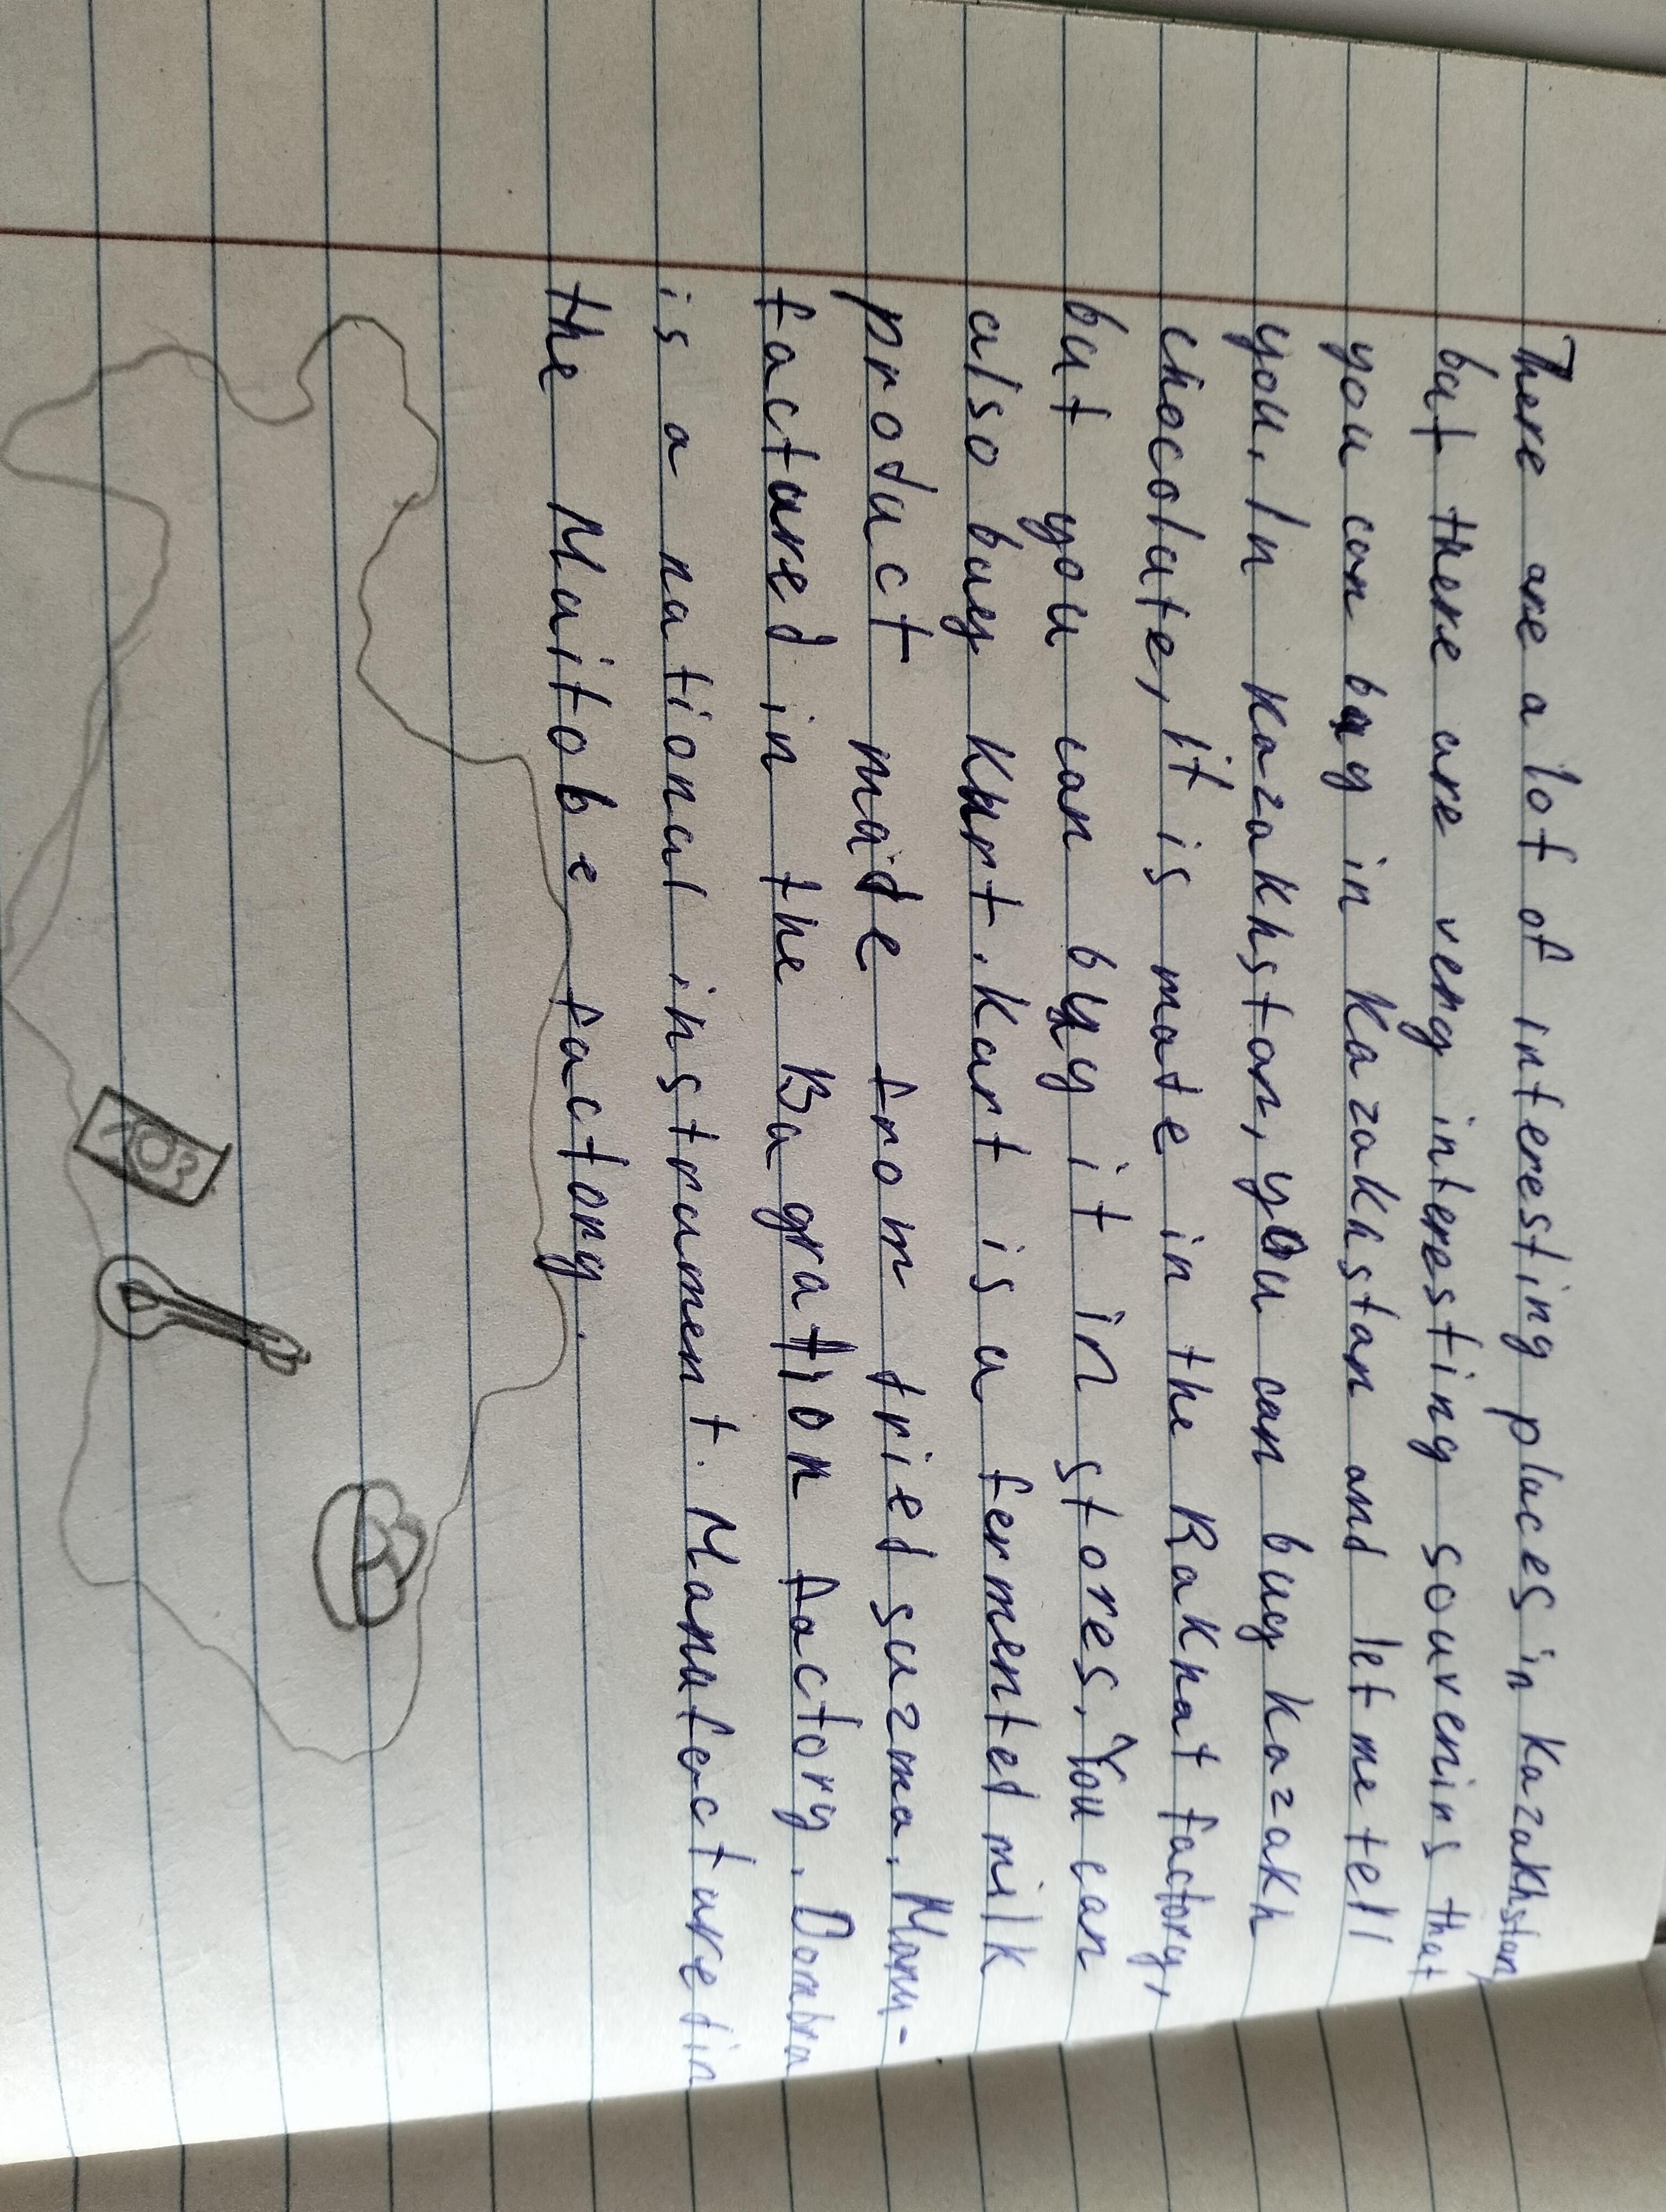 There are a lot of interesting places in Kazakhstan,
but there are very interesting souvenirs that
you can buy in Kazakhstan and let me tell
you. In Kazakhstan, you can buy Kazakh
chocolate, it is mate in the Rakhat factory,
but you can buy it in stores. You can
also buy Kurt. Kurt is a fermented milk
product made from dried suzma. Manu-
factured in the Bagration factory. Dombra
is a national instrument. Manufactured in
the Maitobe factory.